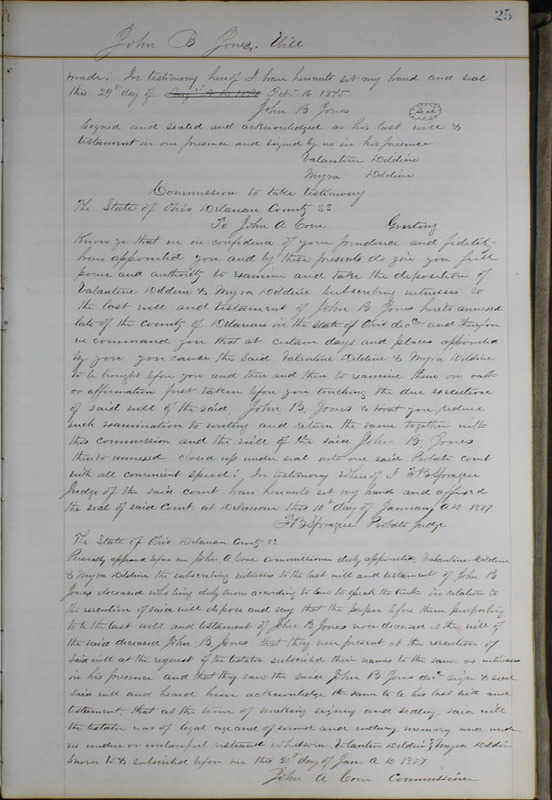 25
John B Jones, Will
made; In testimony hereof I have hereunto set my hand and seal
this 29th day of Feby 16 1875
John B Jones Seal
Signed and sealed and acknowledged as his last will &
testament in our presence and signed by us in his presence
Valantine Dildine
Myra Dildine
Commission to take testimony
The State of Ohio Delaware County SS
To John A Cone Greeting
Know ye that we in confidence of your prudence and fidelity
have appointed you and by these presents do give you full
power and authority to examine and take the deposition of
Valantine Dildine & Myra Dildine Subscribing witnesses to
the last will and testament of John B Jones hereto annexed
late of the County of Delaware in the State of Ohio decd and therefore
we command you that at certain days and places appointed
by you you cause the said Valentine Dildine & Myra Dildine
to be brought before you and then and there to examine them on oath
or affirmation first taken before you touching the due execution
of said will of the said, John B, Jones & that you reduce
such examination to writing and return the same together with
this commission and the will of the said John B. Jones
thereto annexed closed up under seal unto our said Probate court
with all convenient speed; In testimony whereof I F B Sprague
Judge of the said Court have hereunto set my hand and affixed
the seal of said Court at Delaware this 10th day of January AD 1877
F B Sprague Probate Judge
The State of Ohio Delaware County SS
Personally appeared before me John A Cone commissioner duly appointed, Valantine Dildine
& Myra Dildine the subscribing witnesses to the last will and testament of John B
Jones deceased who being duly sworn according to law to speak the truth in relation to
the execution of said will depose and say that the paper before them purporting
to be the last will and testament of John B Jones now deceased is the will of
the said deceased John, B, Jones that they were present at the execution of
said will at the request of the testator subscribed their names to the same as witnesses
in his presence and that they saw the said John B Jones decd sign & seal
said will and heard him acknowledge the same to be his last will and
testament, that at the time of making signing and sealing said will
the testator was of legal age and of sound and memory and under
no undue or unlawful restraint whatsoever, Valantine Dildine & Myra Dildine
Sworn to & subscribed before me this 21st day of Jan A D 1877
John A Cone Commissioner